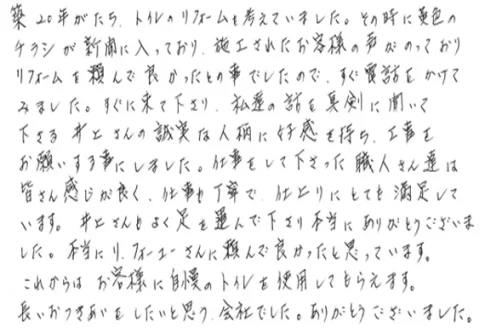 築20年がたち、トイレのリフォームを考えていました。その時に黄色の
チラシが新聞に入っており、施工されたお客様の声がのっており
リフォームを頼んで良かったとの事でしたので、すぐ電話をかけて
みました。すぐに来て下さり、私達の話を真剣に聞いて
下さる井上さんの誠実な人柄に好感を持ち、工事を
お願いする事にしました。仕事をして下さった職人さん達は
皆さん感じが良く、仕事も丁寧で、仕上りにとても満足して
います。井上さんもよく足を運んで下さり本当にありがとうございま
した。本当にリ.フォーユーさんに頼んで良かったと思っています。
これからはお客様に自慢のトイレを使用してもらえます。
長いおつきあいをしたいと思う会社でした。ありがとうございました。